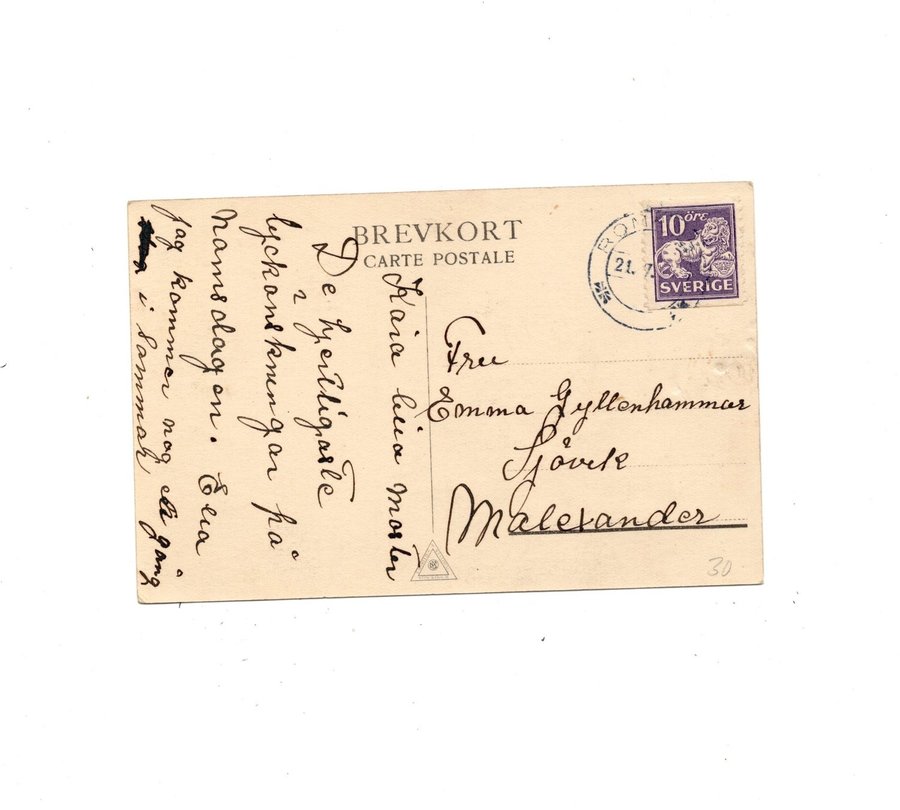 BREVKORT
CARTE POSTALE
10 ÖRE
SVERIGE
21. 7.
Kära lilla Moster
De hjertligaste
lyckönskningar på
Namsdagen. Elia
Jag kommer nog en gång
i sommar
Fru
Emma Gyllenhammar
Sjövik
Malexander
30